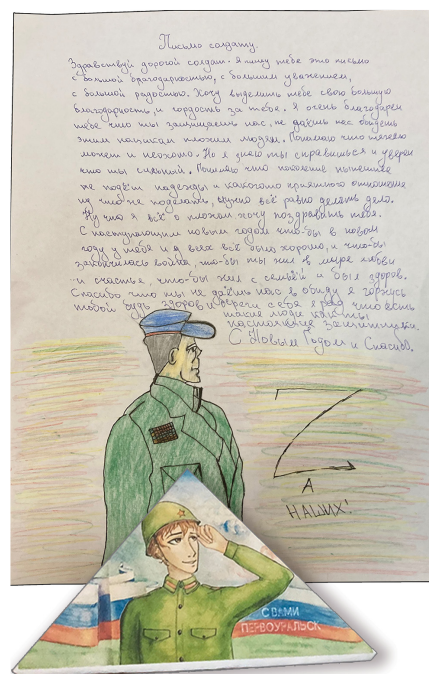 Письмо солдату.
Здравствуй дорогой солдат. Я пишу тебе это письмо
с большой благодарностью, с большим уважением,
с большой радостью. Хочу выделить тебе свою большую
благодарность, и гордость за тебя. Я очень благодарен
тебе что ты защищаешь нас, не даёшь нас
этим плохим людям. Понимаю что тяжело
может и неохото. Но я знаю ты справишься и уверен
что ты сильный. Понимаю что поколение
не надежды и какого приятного отношение
но что не поделать, нужно всё равно делать дело.
Ну что я всё о плохом хочу поздравить тебя.
С наступающим новым годом что-бы в новом
году у тебя и у всех всё было хорошо, и что-бы
закончилась война, что-бы ты жил в мире любви
и счастья, что-бы жил с семьёй и был здоров.
Спасибо что ты не даёшь нас в обиду я горжусь
тобой будь здоров и береги себя я рад что есть
такие люди как ты
настоящие защитники.
С Новым Годом и Спасибо.
Z
А
НАШИХ!
С ВАМИ
ПЕРВОУРАЛЬСК